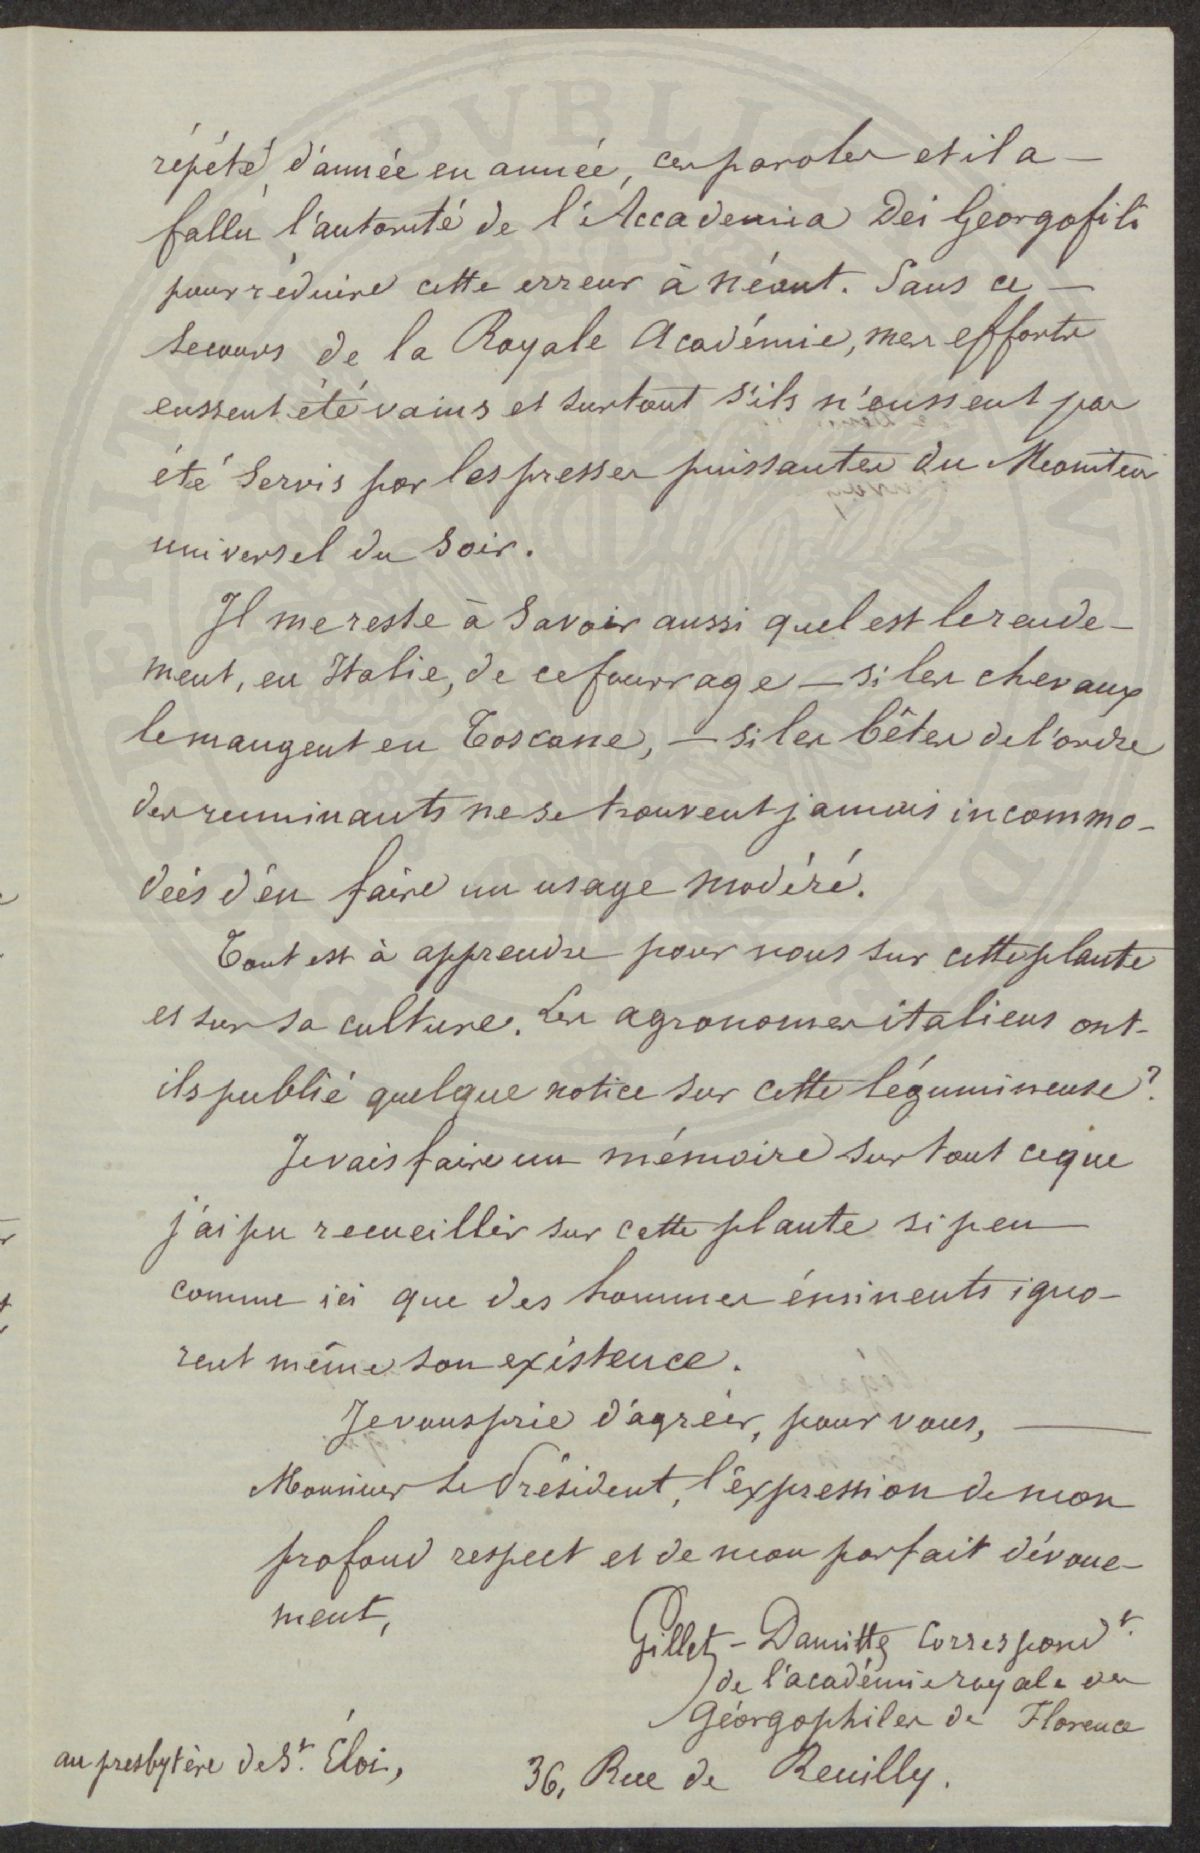 répété, d'année en année, ces paroles et il a —
fallu l'autorité de l'Accademia Dei Georgofili
pour réduire cette erreur à néant. Sans ce —
secours de la Royale Académie, mes efforts
eussent été vains et surtout s'ils n'eussent pas
été servis par les presses puissantes du Moniteur
universel du soir.
Il me reste à savoir aussi quel est le rende-
ment, en Italie, de ce fourrage — si les chevaux
le mangent en Toscane, — si les bêtes de l'ordre
des ruminants ne se trouvent jamais incommo-
deés d'en faire un usage modéré.
Tout est à apprendre pour nous sur cette plante
et sur sa culture. Les agronomes italiens ont-
ils publié quelque notice sur cette légumineuse?
Je vais faire un mémoire sur tout ce que
j'ai pu recueillir sur cette plante si peu —
connue ici que des hommes éminents igno-
rent même son existence.
Je vous prie d'agréer, pour vous, —
Monsieur le Président, l'expression de mon
profond respect et de mon parfait dévoue-
ment,
Gillet-Damitte Correspondt.
de l'académie royale des
Géorgophiles de Florence
au presbytère de St. Éloi,
36, Rue de Reuilly.